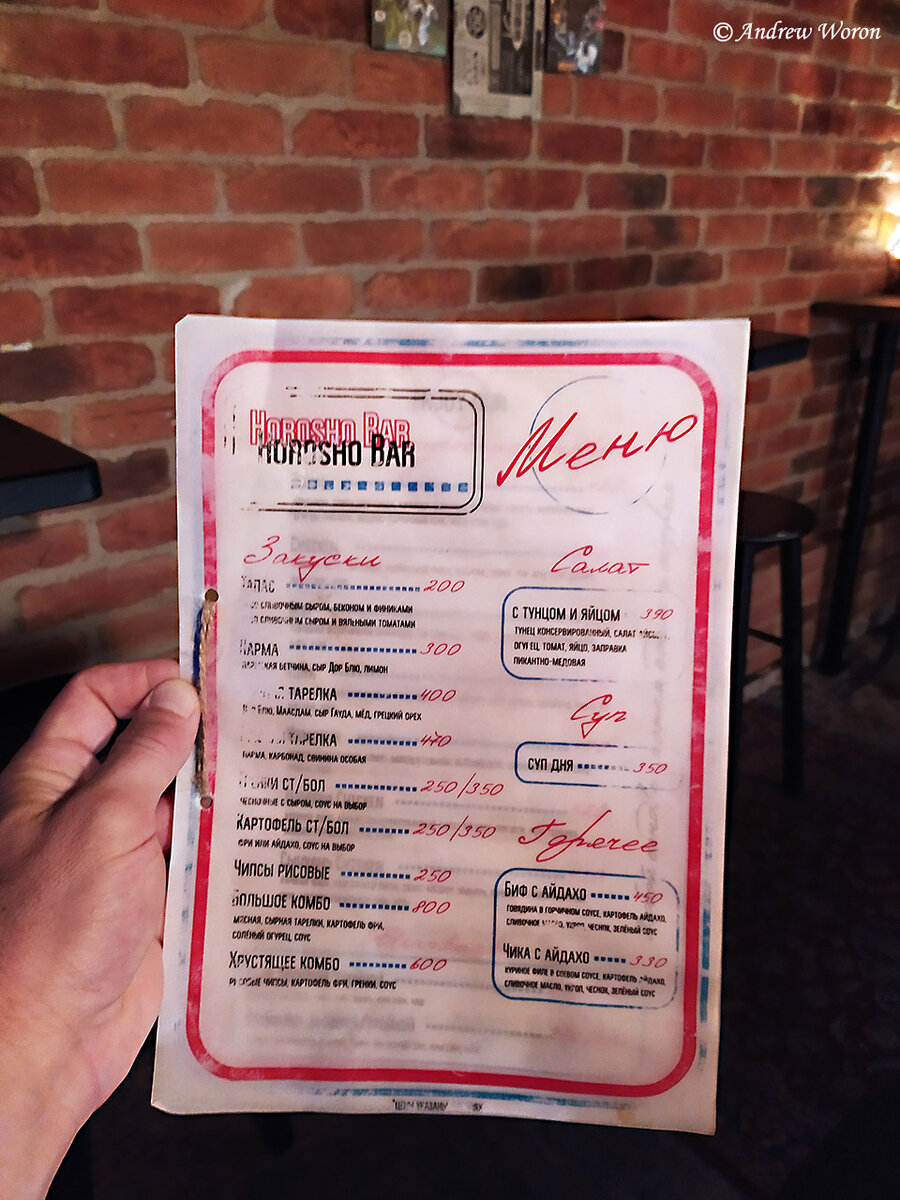 © Andrew Woron
Horosho Bar
Horosho Bar
Меню
Закуски
Тапас 200
со сливочным сыром, беконом и финиками
со сливочным сыром и вялеными томатами
Парма 300
ветчина, сыр Дор Блю, лимон
тарелка 400
Дор Блю, Маасдам, сыр Гауда, мёд, грецкий орех
тарелка 470
Парма, карбонад, свинина особая
Гренки ст/бол 250/350
чесночные с сыром, соус на выбор
Картофель ст/бол 250/350
фри или айдахо, соус на выбор
Чипсы рисовые 250
Большое комбо 800
мясная, сырная тарелки, картофель фри,
солёный огурец, соус
Хрустящее комбо 600
рисовые чипсы, картофель фри, гренки, соус
Салат
с тунцом и яйцом 390
тунец консервированный, салат айсберг,
огурец, томат, яйцо, заправка
пикантно-медовая
Суп
суп дня 350
Горячее
Биф с айдахо 450
говядина в горчичном соусе, картофель айдахо,
сливочное масло, укроп, чеснок, зелёный соус
Чика с айдахо 330
куриное филе в соевом соусе, картофель айдахо,
сливочное масло, укроп, чеснок, зелёный соус
*Цены указаны